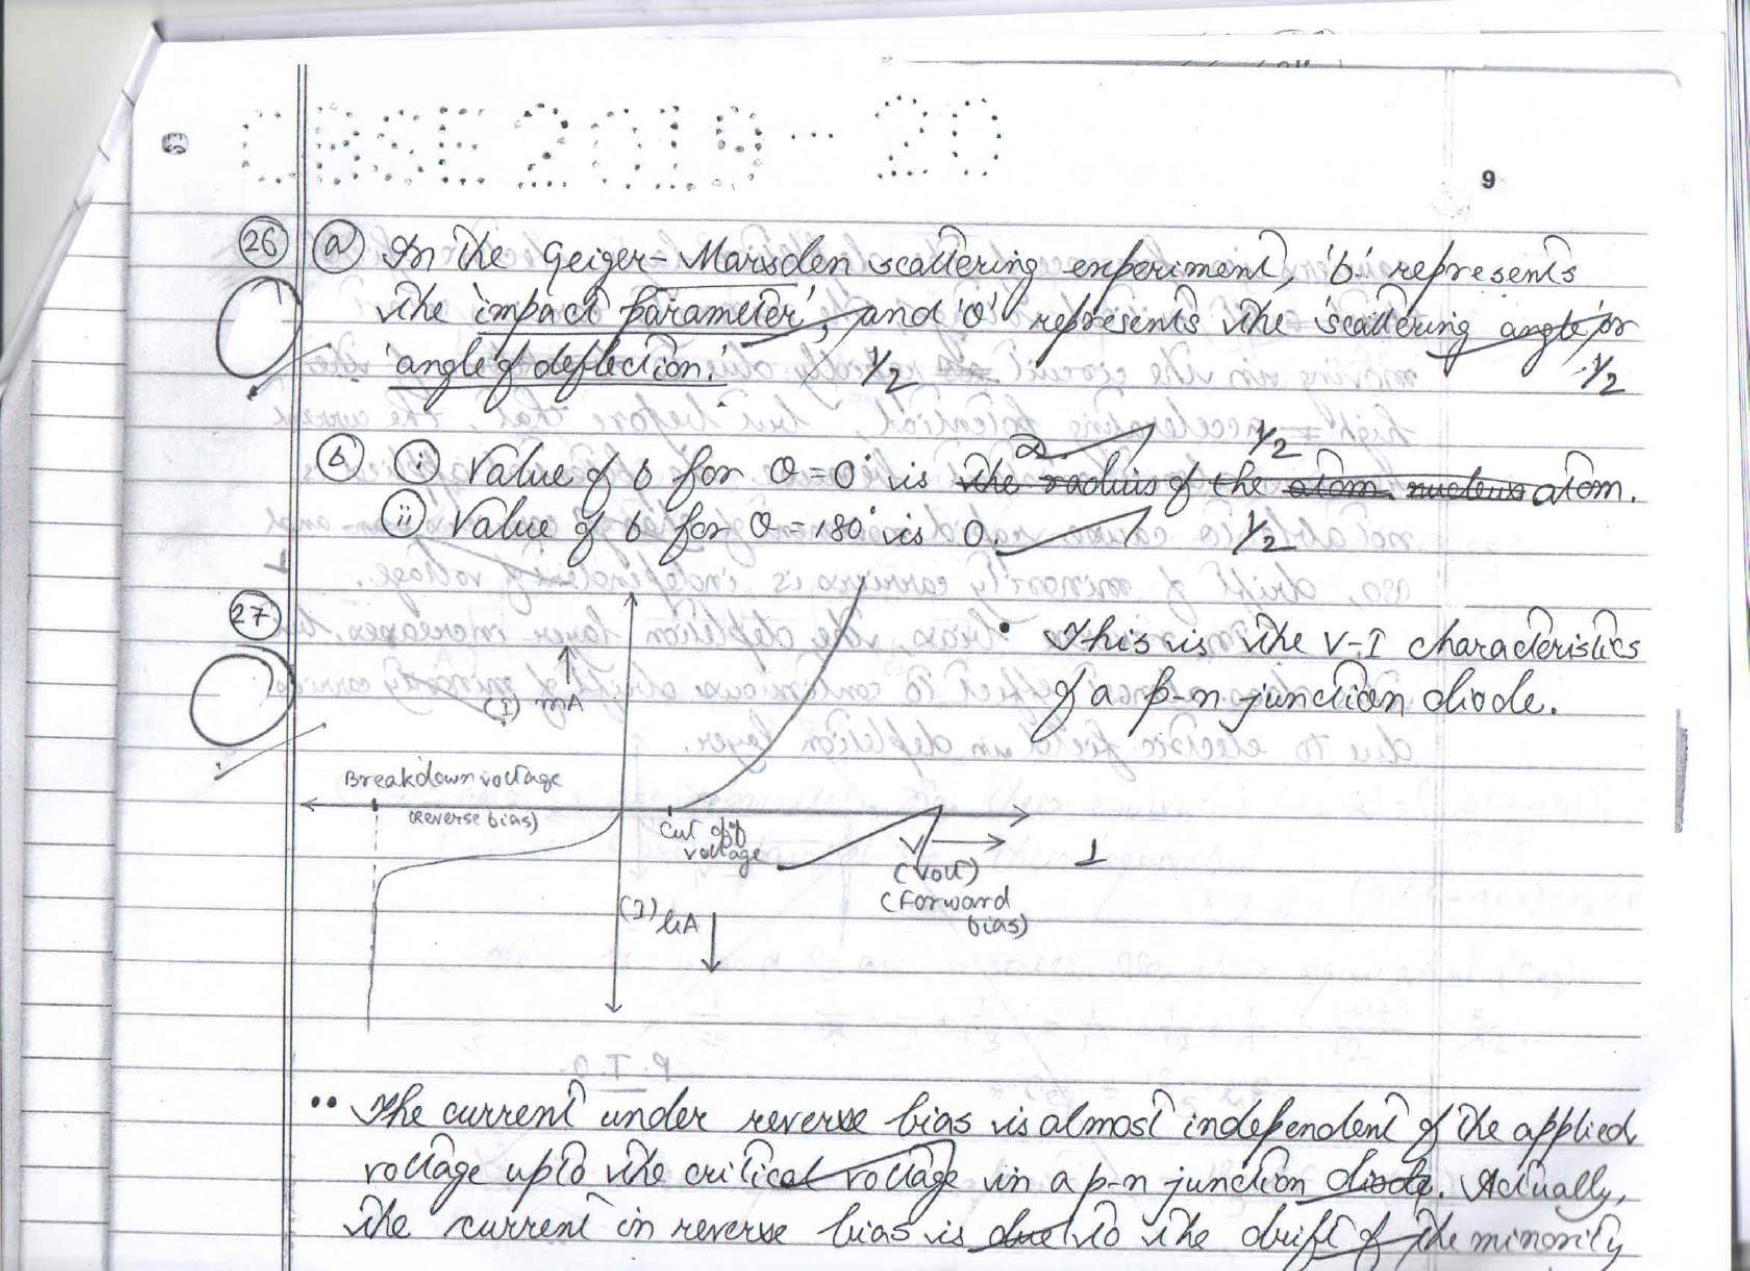 CBSE 2019-20
9
26 a In the Geiger-Marsden scattering experiment, 'b' represents
the 'impact parameter', and 'θ' represents the 'scattering angle' or
'angle of deflection.' 1/2 1/2
1/2
b i Value of b for θ=0° is the radius of the atom nucleus atom.
ii Value of b for θ=180° is 0. 1/2
27
• This is the V-I characteristics
of a p-n junction diode.
(I) mA
Breakdown voltage
(Reverse bias)
Cut off
voltage
V
(Volt)
(Forward
bias)
1
(I) μA
•• The current under reverse bias is almost independent of the applied
voltage upto the critical voltage in a p-n junction diode. Actually,
the current in reverse bias is due to the drift of the minority